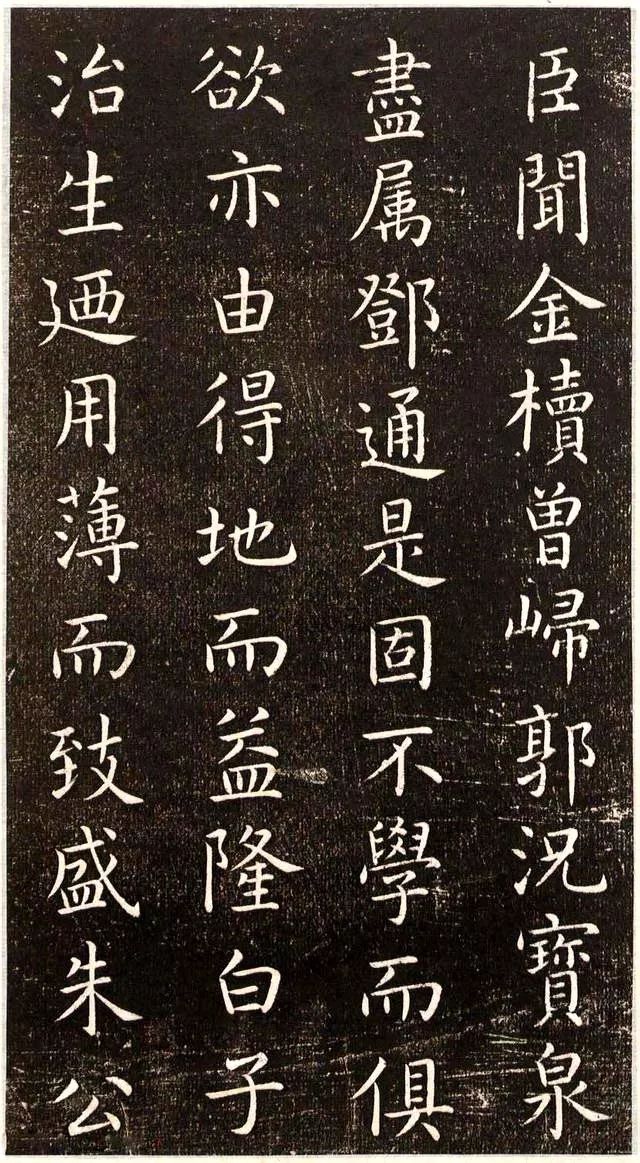 臣聞金櫝曾㱕郭況寳泉
盡属鄧通是固不學而俱
欲亦由得地而益隆白子
治生廼用薄而致盛朱公